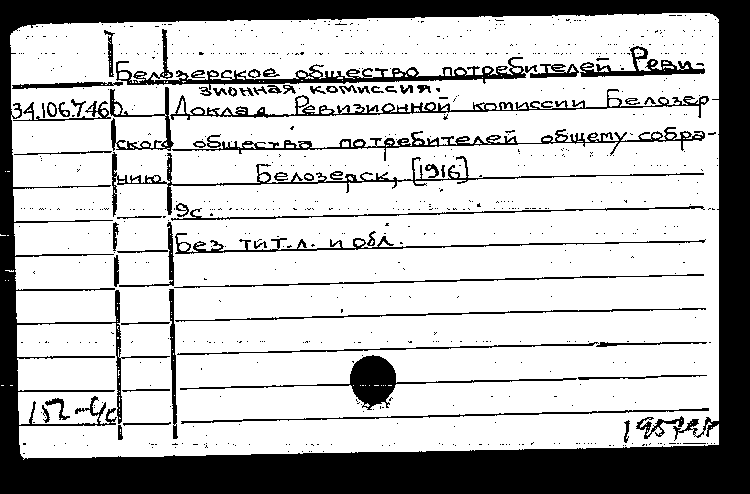 Белозерское общество потребителей. Реви-
зионная комиссия.
34.106.7.460. Доклад Ревизионной комиссии Белозер-
ского общества потребителей общему собра-
нию. Белозерск, [1916].
9с.
Без тит.л. и обл.